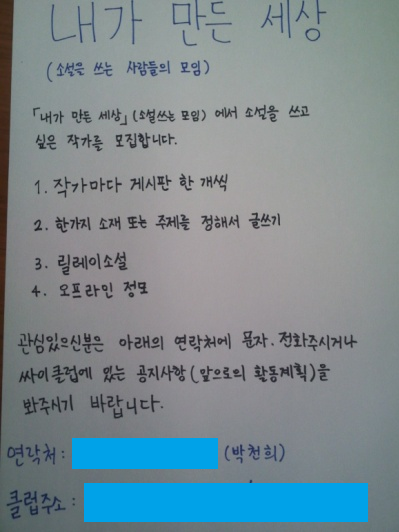 내가 만든 세상
(소설을 쓰는 사람들의 모임)
「내가 만든 세상」(소설쓰는 모임) 에서 소설을 쓰고
싶은 작가를 모집합니다.
1. 작가마다 게시판 한 개씩
2. 한가지 소재 또는 주제를 정해서 글쓰기
3. 릴레이소설
4. 오프라인 정모
관심있으신분은 아래의 연락처에 문자. 전화주시거나
싸이클럽에 있는 공지사항(앞으로의 활동계획)을
봐주시기 바랍니다.
연락처: (박천희)
클럽주소: